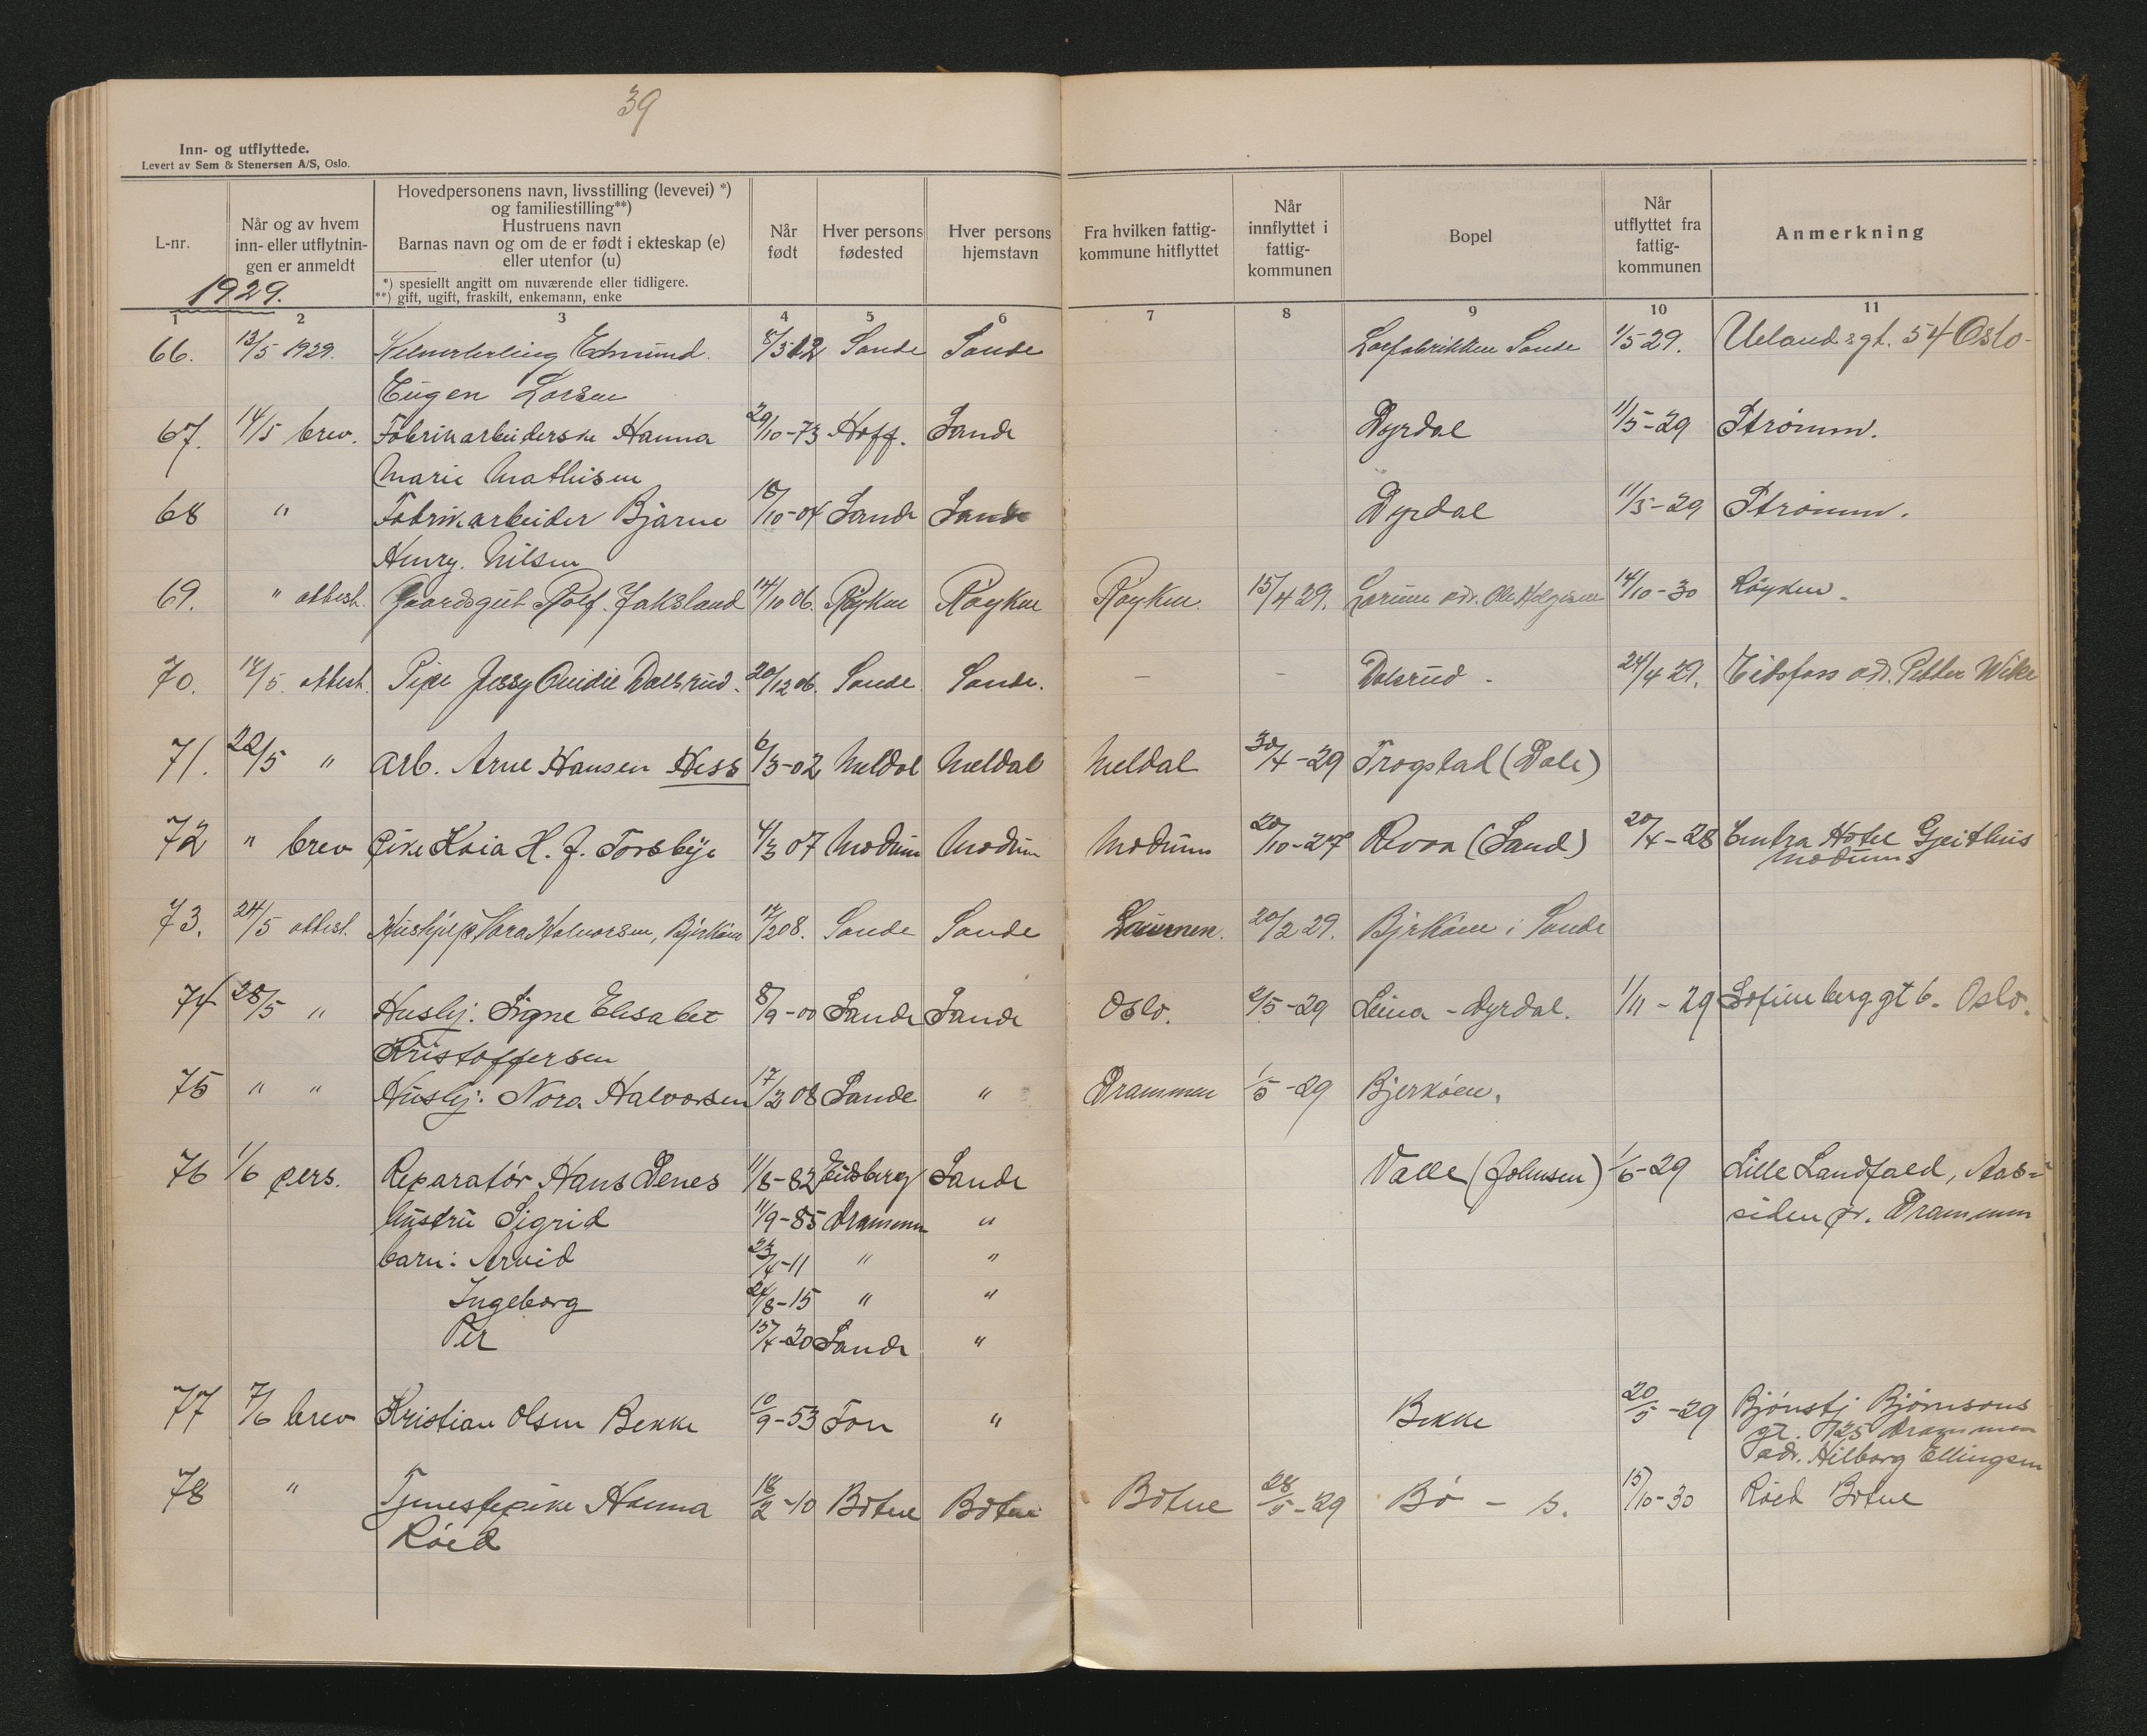 39
Inn- og utflyttede.
Levert av Sem & Stenersen A/S, Oslo.
L-nr.
Når og av hvem inn- eller utflytnin- gen er anmeldt
Hovedpersonens navn, livsstilling (levevei) *)
og familiestilling**)
Hustruens navn
Barnas navn og om de er født i ekteskap (e)
eller utenfor (u)
*) spesiellt angitt om nuværende eller tidligere.
**) gift, ugift, fraskilt, enkemann, enke
Når født
Hver persons fødested
Hver persons hjemstavn
Fra hvilken fattig- kommune hitflyttet
Når innflyttet i fattig- kommunen
Bopel
Når utflyttet fra fattig- kommunen
Anmerkning
1929.
1 2 3 4 5 6 7 8 9 10 11
66. 13/5 1929. Edmund. 8/5 12 Sande Sande Sande 1/5 29. Uelandsgt. 54 Oslo-
Eugen Larsen
67. 14/5 brev. Fabrikarbeiderske Hanna 29/10-73 Hoff. Sande Dyrdal 11/5-29 Strømm.
Marie Mathisen
68 " Fabrikarbeider Bjarne 18/10-04 Sande Sande Dyrdal 11/5-29 Strømm.
Henry. Nilsen
69. " attest. Gaardsgut Rolf. Jaksland 14/10 06. Røyken Røyken Røyken 15/4 29. adr. Ole Helgesen 14/10-30 Røyken.
70. 14/5. attest. Pike Jessy Ovidie Dalsrud. 20/12 06. Sande Sande. - - Dalsrud - 24/4 29. Eidsfoss adr. Petter Wike
71. 22/5 " Arb. Arne Hansen Hess 6/3-02 Meldal Meldal Meldal 30/4-29 Trogstad (Dale)
72 " brev pike Kaia H. J. Torsbye 4/3 07 Modum Modum Modum 20/10-27 Revaa (Sand) 20/4-28 Hotel Gjeithus
Modum
73. 24/5 attest. Hushjelp Nora Halvorsen, Bjerköen 17/2 08. Sande Sande 20/2 29. Bjerköen i Sande
74 28/5 " Hushj: Signe Elisabet 8/9-00 Sande Sande Oslo. 2/5-29 Leina - Dyrdal. 1/11-29 Sofienberggt 6. Oslo.
Kristoffersen
75 " " Hushj: Nora Halvorsen 17/2 08 Sande " Drammen 1/5-29 Bjerköen.
76 1/6 pers. Reparatör Hans Denes 11/8-82 Eidsberg Sande Valle (Johnsen) 1/6-29 Lille Landfald, Aas-
hustru Sigrid 11/9-85 Drammen " siden pr. Drammen
barn: Arvid 23/4-11 " "
Ingeborg 24/8-15 " "
Per 15/4-20 Sande "
77 7/6 brev Kristian Olsen Bekke 10/9-53 Fon " Bekke 20/5-29 Bjønstj Bjørnsons
gt. 125 Drammen
adr. Hilborg Ellingsen
78 " Tjenestepike Hanna 18/2-10 Botne Botne Botne 28/5-29 Bö - s. 15/10-30 Röed Botne
Röed